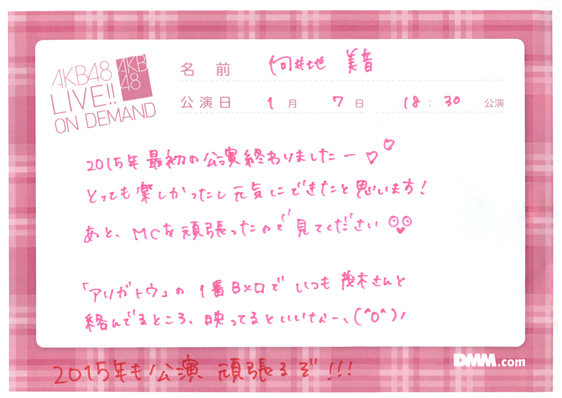 AKB48
LIVE!!
ON DEMAND
AKB
48
名 前 向井地 美音
公演日 1月 7日 18:30 公演
2015年 最初の公演終わりましたー♡♡
とっても楽しかったし元気にできたと思います!
あと、MCを頑張ったので見てください
「アリガトウ」の1番Bメロで いつも 茂木さんと
絡んでるところ、映ってるといいなー、(^o^)/
DMM.com
2015年も公演 頑張るぞ!!!